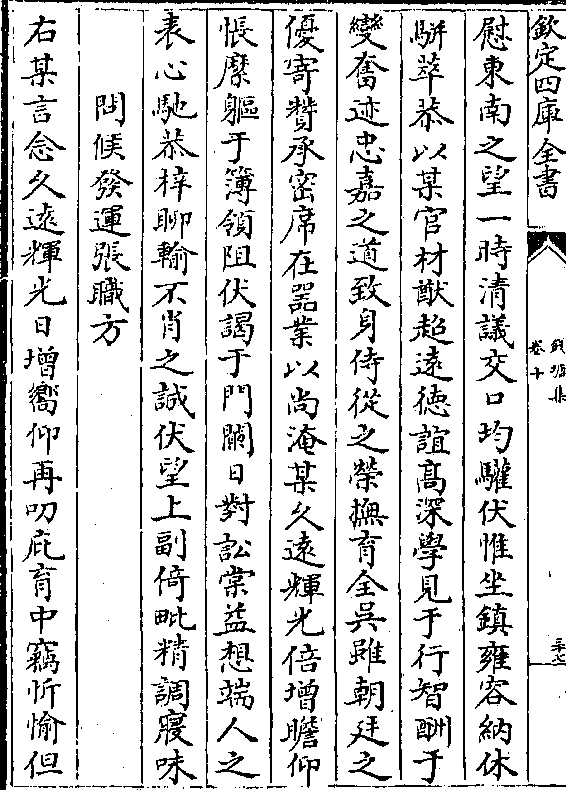 欽定四庫全書
卷十
慰東南之望一時清議交口均驩伏惟坐鎮雍容納休
駢萃恭以某官材猷超遠徳誼髙深學見于行智酬于
變奮迹忠嘉之道致身侍從之榮撫育全吳雖朝廷之
優寄贊承密席在噐業以尚淹某久逺輝光倍增瞻仰
悵縻軀于簿領阻伏謁于門闌日對訟棠益想端人之
表心馳恭梓聊輸不肖之誠伏望上副倚毗精調寢味
問候發運張職方
右某言念久逺輝光日増嚮仰再叨庇育中竊忻愉但